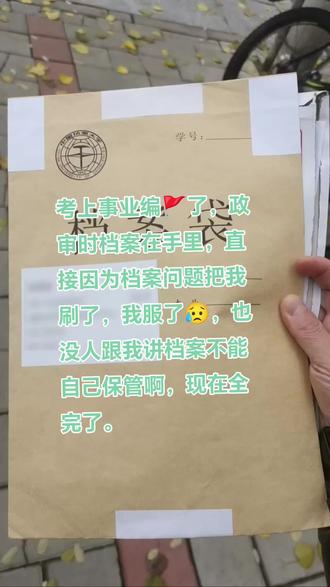 学号:
档案袋
考上事业编🚩了，政
审时档案在手里，直
接因为档案问题把我
刷了，我服了😥，也
没人跟我讲档案不能
自己保管啊，现在全
完了。